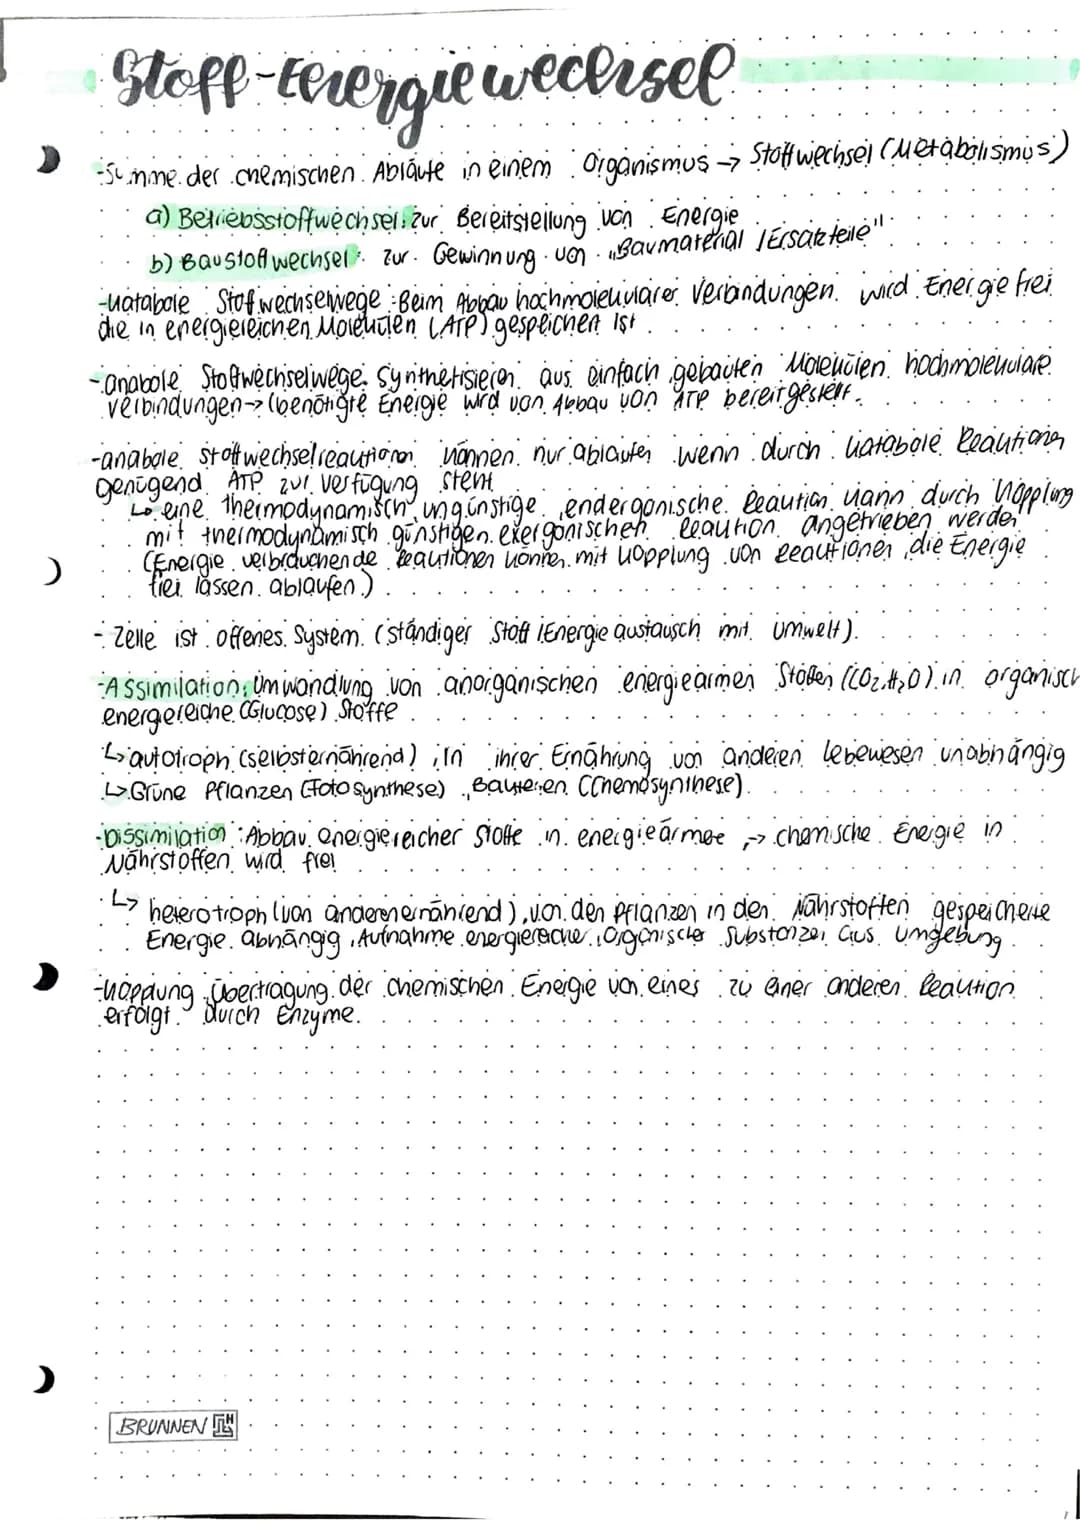 Stoff-Energiewechsel
-Summe der chemischen Abläufe in einem Organismus → Stoffwechsel (Metabolismus)
a) Betriebsstoffwechsel: zur Bereitstellung von Energie
b) Baustoffwechsel: zur Gewinnung von „Baumaterial /Ersatzteile"
-katabole Stoffwechselwege: Beim Abbau hochmolekularer Verbindungen wird Energie frei
die in energiereichen Molekülen (ATP) gespeichert ist
-anabole Stoffwechselwege: Synthetisieren aus einfach gebauten Molekülen hochmolekulare
Verbindungen → (benötigte Energie wird von Abbau von ATP bereitgestellt.
-anabole Stoffwechselreaktionen können nur ablaufen wenn durch katabole Reaktionen
genügend ATP zur Verfügung steht
↳ eine thermodynamisch ungünstige, endergonische Reaktion kann durch Kopplung
mit thermodynamisch günstigen exergonischen Reaktion angetrieben werden
(Energie verbrauchende Reaktionen können mit Kopplung von Reaktionen, die Energie
frei lassen ablaufen.)
- Zelle ist offenes System (ständiger Stoff /Energieaustausch mit Umwelt).
-Assimilation: Umwandlung von anorganischen energiearmen Stoffen (CO2, H2O) in organisch
energiereiche (Glucose) Stoffe
↳ autotroph (selbsternährend), in ihrer Ernährung von anderen Lebewesen unabhängig
↳ Grüne Pflanzen (Fotosynthese), Bakterien (Chemosynthese)
-Dissimilation: Abbau energiereicher Stoffe in energieärmere, → chemische Energie in
Nährstoffen wird frei
↳ heterotroph (von anderen ernährend), von den Pflanzen in den Nährstoffen gespeicherte
Energie abhängig, Aufnahme energiereicher, organischer Substanzen aus Umgebung
-Kopplung: Übertragung der chemischen Energie von eines zu einer anderen Reaktion
erfolgt durch Enzyme.
BRUNNEN